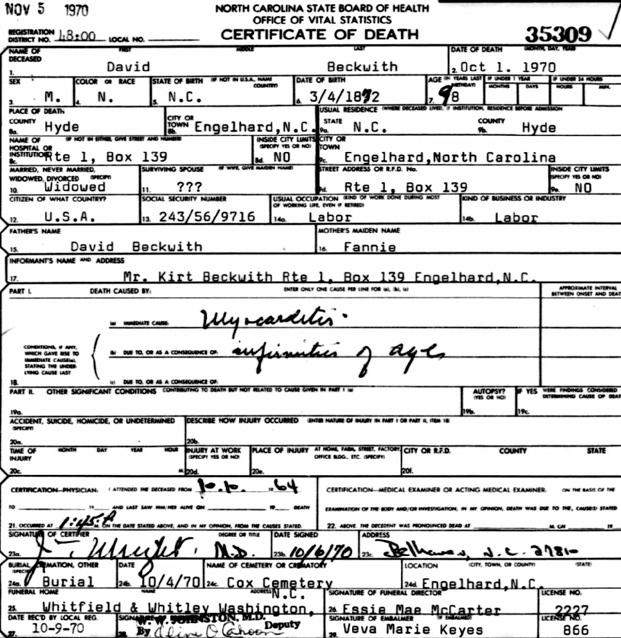 NOV 5 1970
NORTH CAROLINA STATE BOARD OF HEALTH
OFFICE OF VITAL STATISTICS
REGISTRATION DISTRICT NO. 48:00 LOCAL NO. CERTIFICATE OF DEATH 35309
NAME OF DECEASED FIRST MIDDLE LAST DATE OF DEATH (MONTH, DAY, YEAR)
1. David Beckwith 2. Oct 1. 1970
SEX COLOR OR RACE STATE OF BIRTH (IF NOT IN U.S.A., NAME COUNTRY) DATE OF BIRTH AGE (IN YEARS LAST BIRTHDAY) IF UNDER 1 YEAR MONTHS DAYS IF UNDER 24 HOURS HOURS MIN.
3. M. 4. N. 5. N.C. 6. 3/4/1872 7. 98
PLACE OF DEATH USUAL RESIDENCE (WHERE DECEASED LIVED, IF INSTITUTION, RESIDENCE BEFORE ADMISSION)
COUNTY CITY OR TOWN STATE COUNTY
8a. Hyde 8b. Engelhard,N.C. 9a. N.C. 9b. Hyde
NAME OF HOSPITAL OR INSTITUTION (IF NOT IN EITHER, GIVE STREET AND NUMBER) INSIDE CITY LIMITS (SPECIFY YES OR NO) CITY OR TOWN
8c. Rte 1, Box 139 8d. NO 9c. Engelhard,North Carolina
MARRIED, NEVER MARRIED, WIDOWED, DIVORCED (SPECIFY) SURVIVING SPOUSE (IF WIFE, GIVE MAIDEN NAME) STREET ADDRESS OR R.F.D. No. INSIDE CITY LIMITS (SPECIFY YES OR NO)
10. Widowed 11. ??? 9d. Rte 1, Box 139 9e. NO
CITIZEN OF WHAT COUNTRY? SOCIAL SECURITY NUMBER USUAL OCCUPATION (KIND OF WORK DONE DURING MOST OF WORKING LIFE, EVEN IF RETIRED) KIND OF BUSINESS OR INDUSTRY
12. U.S.A. 13. 243/56/9716 14a. Labor 14b. Labor
FATHER'S NAME MOTHER'S MAIDEN NAME
15. David Beckwith 16. Fannie
INFORMANT'S NAME AND ADDRESS
17. Mr. Kirt Beckwith Rte 1, Box 139 Engelhard,N.C.
PART I. DEATH CAUSED BY: ENTER ONLY ONE CAUSE PER LINE FOR (a), (b), (c) APPROXIMATE INTERVAL BETWEEN ONSET AND DEATH
(a) IMMEDIATE CAUSE: Myocarditis
CONDITIONS, IF ANY, WHICH GAVE RISE TO IMMEDIATE CAUSE(a), STATING THE UNDERLYING CAUSE LAST
(b) DUE TO, OR AS A CONSEQUENCE OF: infirmities of age
18. (c) DUE TO, OR AS A CONSEQUENCE OF:
PART II. OTHER SIGNIFICANT CONDITIONS CONTRIBUTING TO DEATH BUT NOT RELATED TO CAUSE GIVEN IN PART I (a) AUTOPSY? (YES OR NO) IF YES WERE FINDINGS CONSIDERED DETERMINING CAUSE OF DEATH
19a. 19b. 19c.
ACCIDENT, SUICIDE, HOMICIDE, OR UNDETERMINED (SPECIFY) DESCRIBE HOW INJURY OCCURRED (ENTER NATURE OF INJURY IN PART I OR PART II, ITEM 18)
20a. 20b.
TIME OF INJURY MONTH DAY YEAR HOUR INJURY AT WORK (SPECIFY YES OR NO) PLACE OF INJURY AT HOME, FARM, STREET, FACTORY OFFICE BLDG., ETC. (SPECIFY) CITY OR R.F.D. COUNTY STATE
20c. M 20d. 20e. 20f.
CERTIFICATION—PHYSICIAN: I ATTENDED THE DECEASED FROM 10.10. 19 64 CERTIFICATION—MEDICAL EXAMINER OR ACTING MEDICAL EXAMINER. ON THE BASIS OF THE
TO 19 AND LAST SAW HIM/HER ALIVE ON 19 DEATH EXAMINATION OF THE BODY AND/OR INVESTIGATION, IN MY OPINION, DEATH WAS DUE TO THE CAUSE(S) STATED
21. OCCURRED AT 1:45 A M. ON THE DATE STATED ABOVE, AND IN MY OPINION, FROM THE CAUSES STATED. 22. ABOVE THE DECEDENT WAS PRONOUNCED DEAD AT M. ON 19
SIGNATURE OF CERTIFIER DEGREE OR TITLE DATE SIGNED ADDRESS
23a. M.D. 23b. 10/6/70 23c. Belhaven, N.C. 27810
BURIAL, CREMATION, OTHER (SPECIFY) DATE NAME OF CEMETERY OR CREMATORY LOCATION (CITY, TOWN, OR COUNTY) (STATE)
24a. Burial 24b. 10/4/70 24c. Cox Cemetery 24d. Engelhard,N.C.
FUNERAL HOME N.C. SIGNATURE OF FUNERAL DIRECTOR LICENSE NO.
25. Whitfield & Whitley Washington, 26. Essie Mae McCarter 2227
DATE REC'D BY LOCAL REG. W. W. JOHNSTON, M.D. SIGNATURE OF EMBALMER LICENSE NO.
27. 10-9-70 28. By Deputy 29. Veva Marie Keyes 866